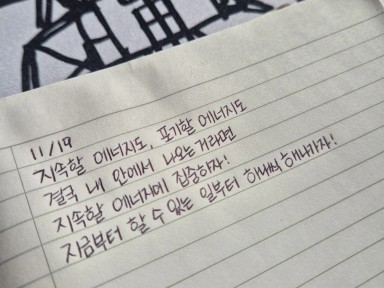 11/19
지속할 에너지도, 포기할 에너지도
결국 내 안에서 나오는거라면
지속할 에너지에 집중하자!
지금부터 할 수 있는 일부터 하나씩 해나가자!